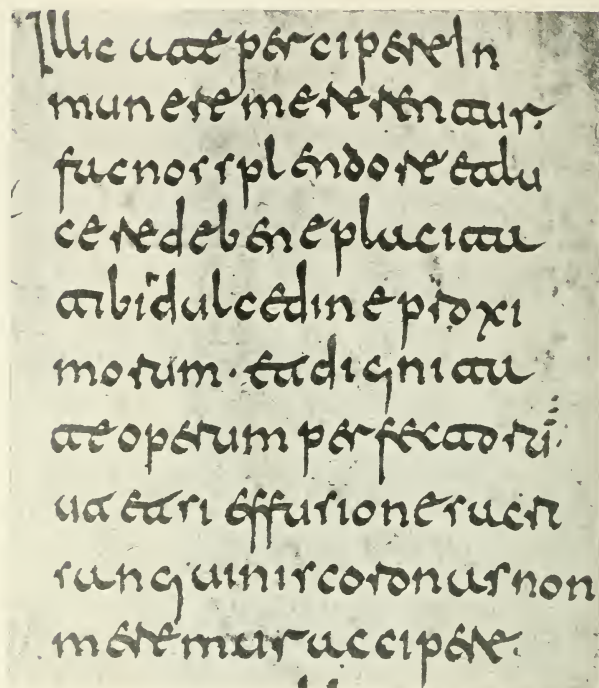 Illic a te percipere in
munere mererentur.
fac nos splendore et lu
cere de beneplacita
tibi dulcedine proxi
morum · et digni ta
te operum perfectorū:
ut etsi effusione sacri
sanguinis coronas non
meremur accipere.